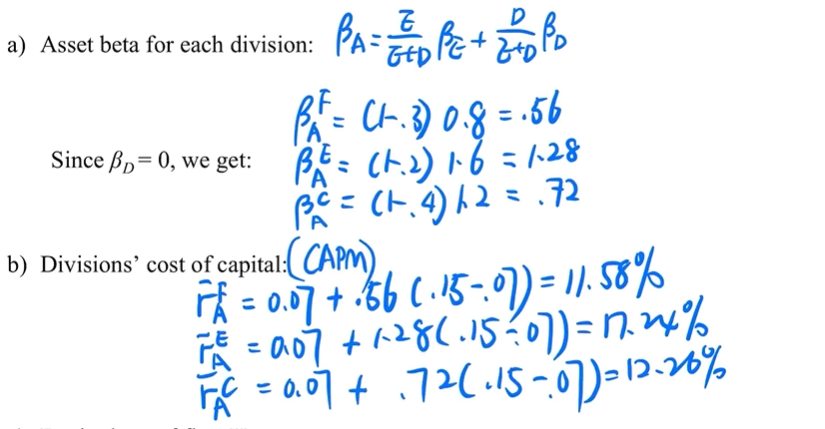 a) Asset beta for each division: β_A = E/(E+D) β_E + D/(E+D) β_D
β_A^F = (1-.3) 0.8 = .56
Since β_D = 0, we get: β_A^E = (1-.2) 1.6 = 1.28
β_A^C = (1-.4) 1.2 = .72
b) Divisions' cost of capital: (CAPM)
r̄_A^F = 0.07 + .56 (.15-.07) = 11.58%
r̄_A^E = 0.07 + 1.28 (.15-.07) = 17.24%
r̄_A^C = 0.07 + .72 (.15-.07) = 12.26%